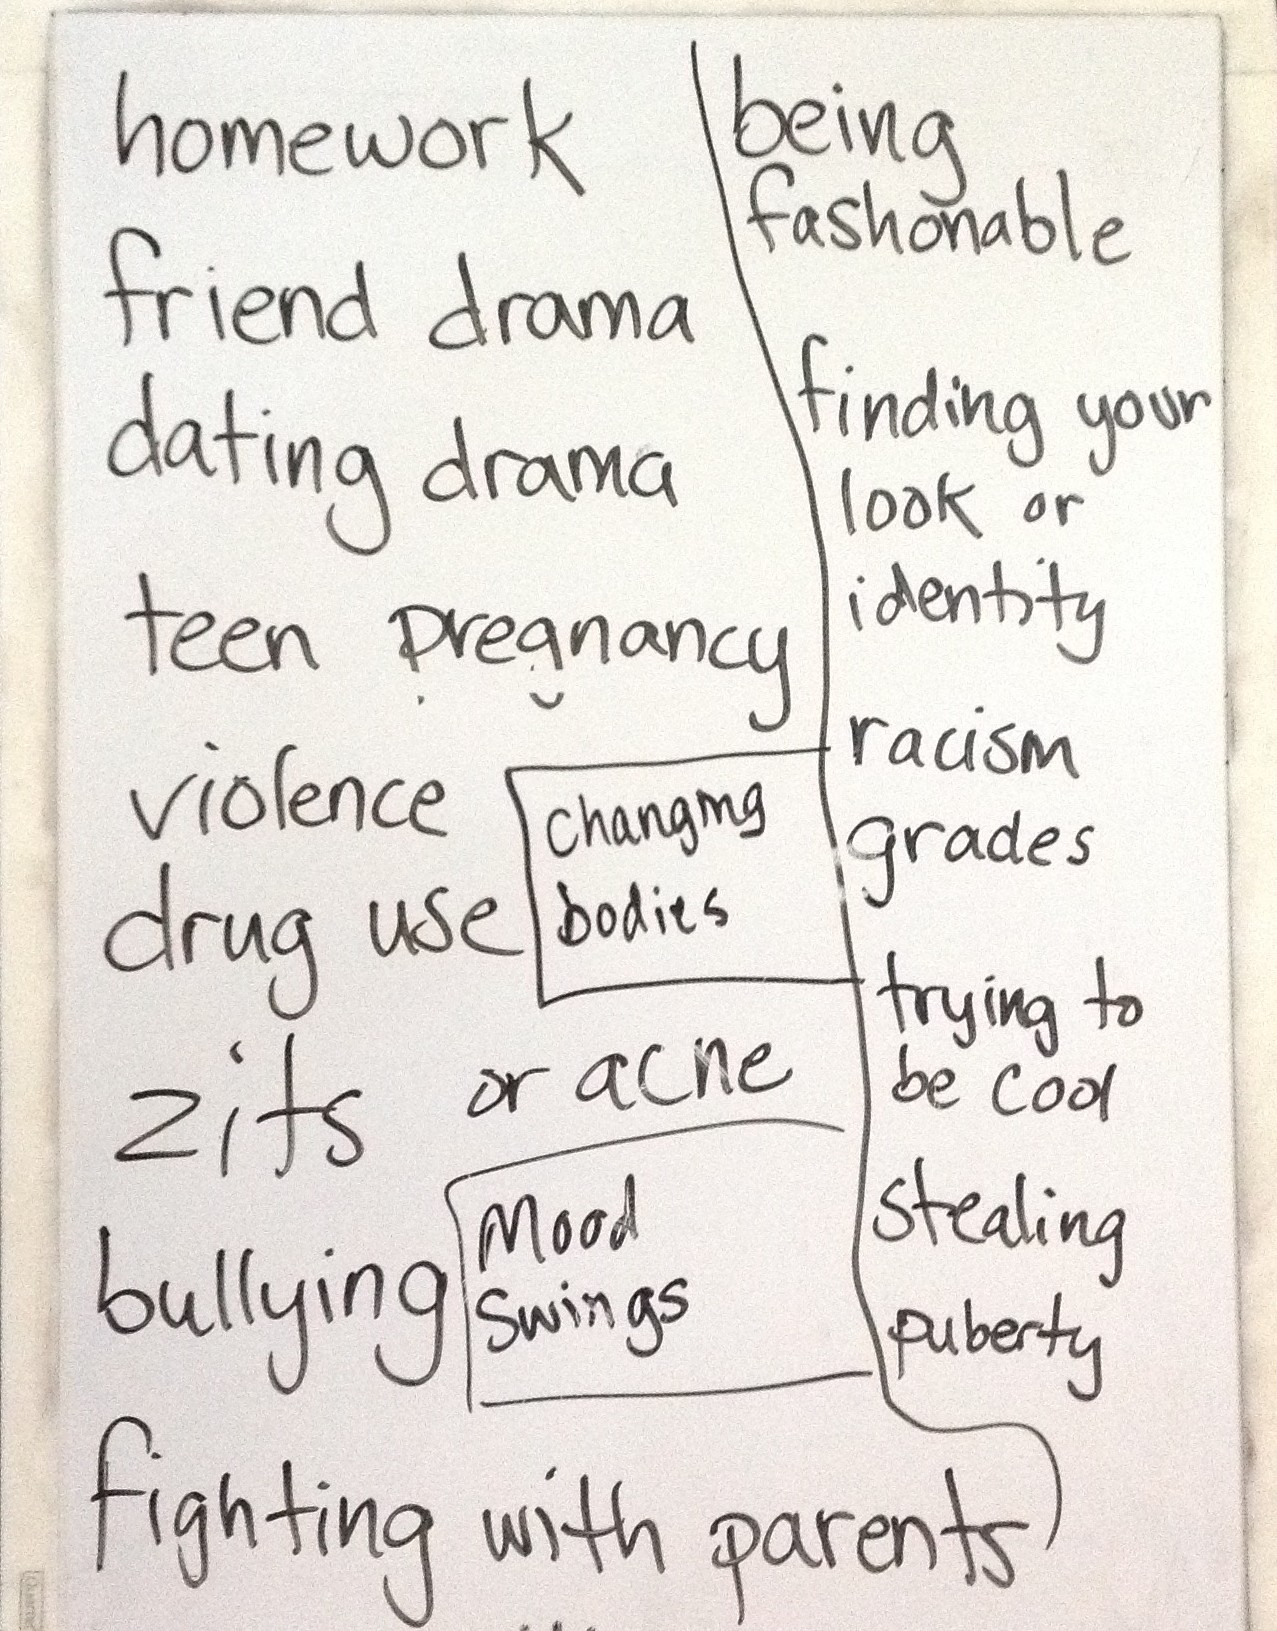 homework
friend drama
dating drama
teen pregnancy
violence
drug use
changing
bodies
zits or acne
bullying
Mood
Swings
fighting with parents
being
fashonable
finding your
look or
identity
racism
grades
trying to
be cool
stealing
puberty